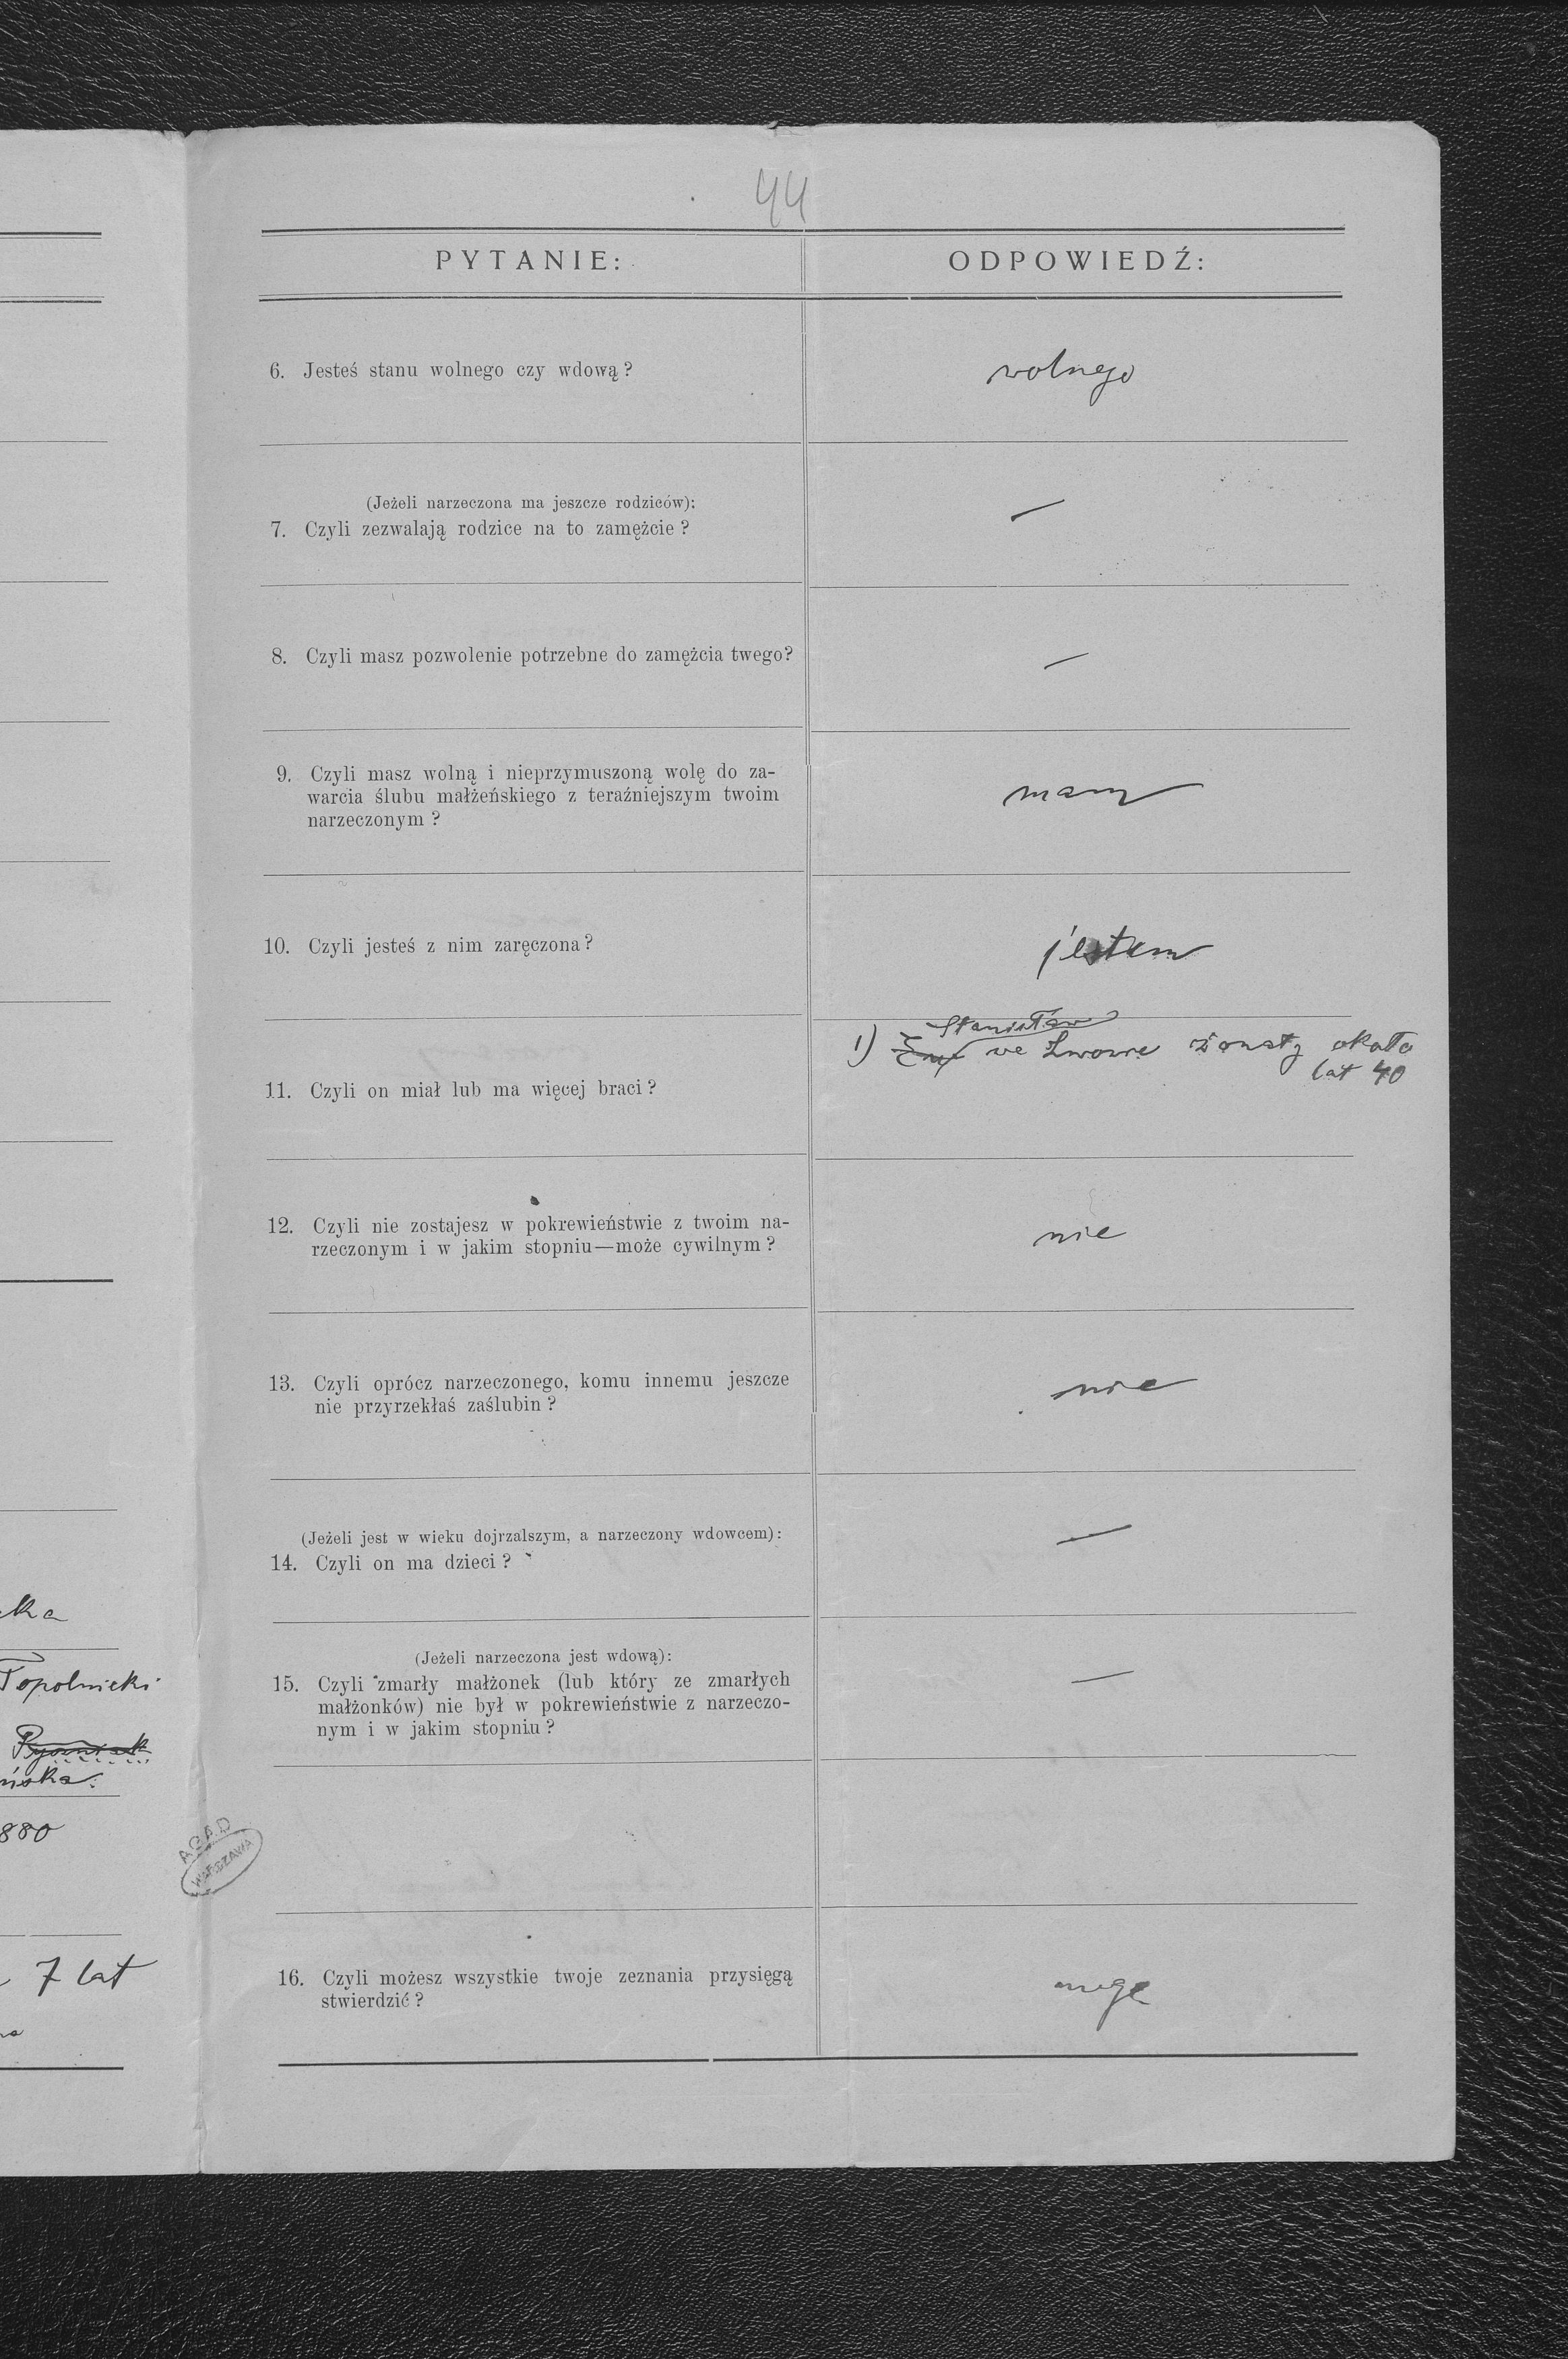 44
PYTANIE:
ODPOWIEDŹ:
6. Jesteś stanu wolnego czy wdową?
wolnego
(Jeżeli narzeczona ma jeszcze rodziców):
7. Czyli zezwalają rodzice na to zamęźcie?
—
8. Czyli masz pozwolenie potrzebne do zamęźcia twego?
—
9. Czyli masz wolną i nieprzymuszoną wolę do za-
warcia ślubu małżeńskiego z teraźniejszym twoim
narzeczonym?
mam
10. Czyli jesteś z nim zaręczona?
jestem
11. Czyli on miał lub ma więcej braci?
Stanisław
1) we Lwowie żonaty około
lat 40
12. Czyli nie zostajesz w pokrewieństwie z twoim na-
rzeczonym i w jakim stopniu—może cywilnym?
nie
13. Czyli oprócz narzeczonego, komu innemu jeszcze
nie przyrzekłaś zaślubin?
nie
(Jeżeli jest w wieku dojrzalszym, a narzeczony wdowcem):
14. Czyli on ma dzieci?
—
(Jeżeli narzeczona jest wdową):
15. Czyli zmarły małżonek (lub który ze zmarłych
małżonków) nie był w pokrewieństwie z narzeczo-
nym i w jakim stopniu?
—
16. Czyli możesz wszystkie twoje zeznania przysięgą
stwierdzić?
mogę
cka
Topolnicki
ińska.
880
7 lat
AGAD
WARSZAWA